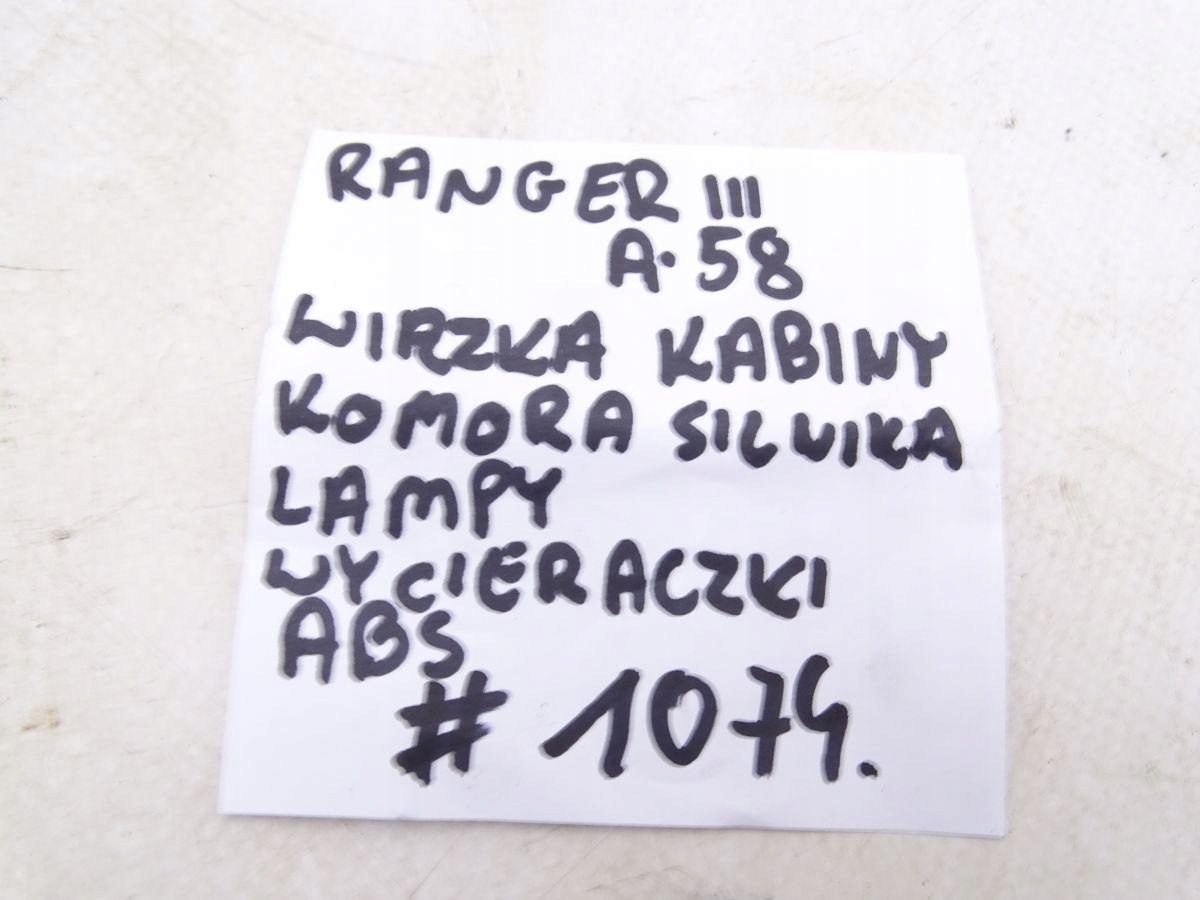 RANGER III
A.58
WIRZKA KABINY
KOMORA SILNIKA
LAMPY
WYCIERACZKI
ABS
# 1074.